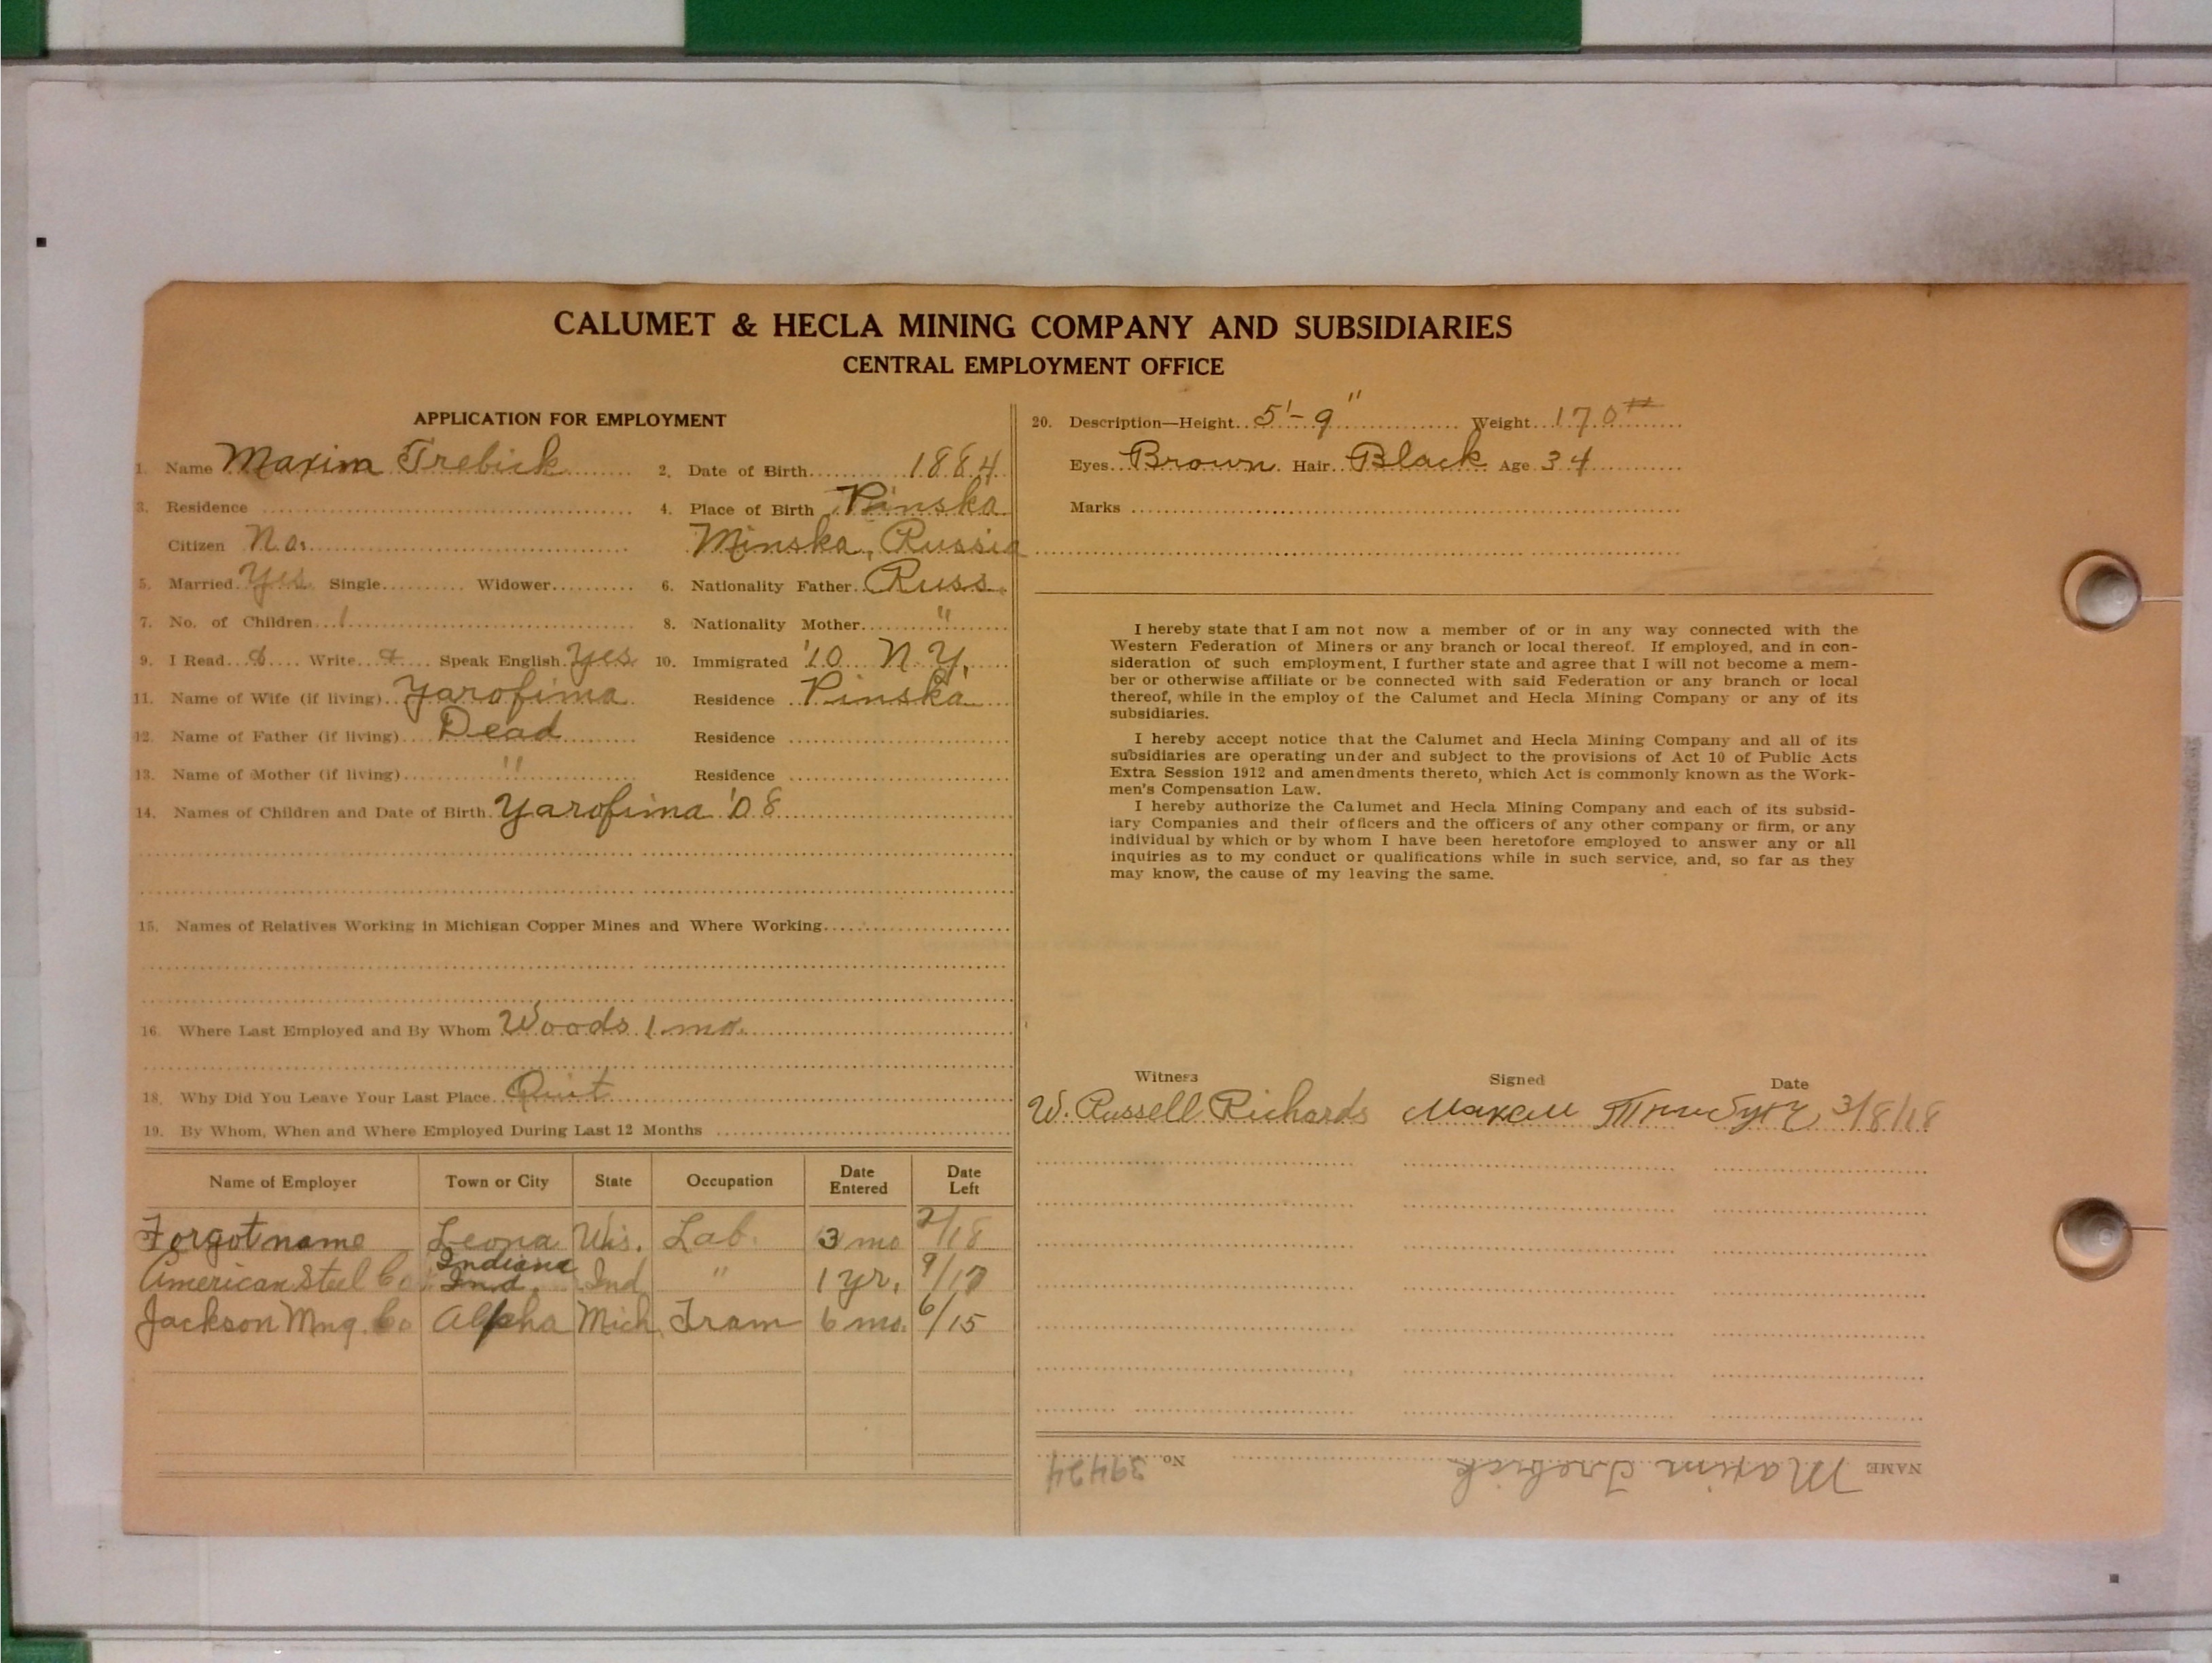 CALUMET & HECLA MINING COMPANY AND SUBSIDIARIES
CENTRAL EMPLOYMENT OFFICE
APPLICATION FOR EMPLOYMENT
1. Name Maxim Trebick
2. Date of Birth 1884
3. Residence
4. Place of Birth Pinska
Citizen No.
Minska, Russia
5. Married Yes Single Widower
6. Nationality Father Russ.
7. No. of Children 1
8. Nationality Mother "
9. I Read Write Speak English Yes
10. Immigrated '10 N.Y.
11. Name of Wife (if living) Yarofima Residence Pinska
12. Name of Father (if living) Dead Residence
13. Name of Mother (if living) " Residence
14. Names of Children and Date of Birth Yarofima '08
15. Names of Relatives Working in Michigan Copper Mines and Where Working
16. Where Last Employed and By Whom Woods 1 mo.
18. Why Did You Leave Your Last Place Quit
19. By Whom, When and Where Employed During Last 12 Months
Name of Employer Town or City State Occupation Date Entered Date Left
Forgot name Leona Wis. Lab. 3 mo 2/18
American Steel Co Indiana Ind. Ind " 1 yr. 9/17
Jackson Mng. Co Alpha Mich Tram 6 mo. 6/15
20. Description—Height 5'-9" Weight 170#
Eyes Brown Hair Black Age 34
Marks
I hereby state that I am not now a member of or in any way connected with the
Western Federation of Miners or any branch or local thereof. If employed, and in con-
sideration of such employment, I further state and agree that I will not become a mem-
ber or otherwise affiliate or be connected with said Federation or any branch or local
thereof, while in the employ of the Calumet and Hecla Mining Company or any of its
subsidiaries.
I hereby accept notice that the Calumet and Hecla Mining Company and all of its
subsidiaries are operating under and subject to the provisions of Act 10 of Public Acts
Extra Session 1912 and amendments thereto, which Act is commonly known as the Work-
men's Compensation Law.
I hereby authorize the Calumet and Hecla Mining Company and each of its subsid-
iary Companies and their officers and the officers of any other company or firm, or any
individual by which or by whom I have been heretofore employed to answer any or all
inquiries as to my conduct or qualifications while in such service, and, so far as they
may know, the cause of my leaving the same.
Witness Signed Date
W. Russell Richards Максим 3/8/18
NAME Maxim Trebick No. 39424